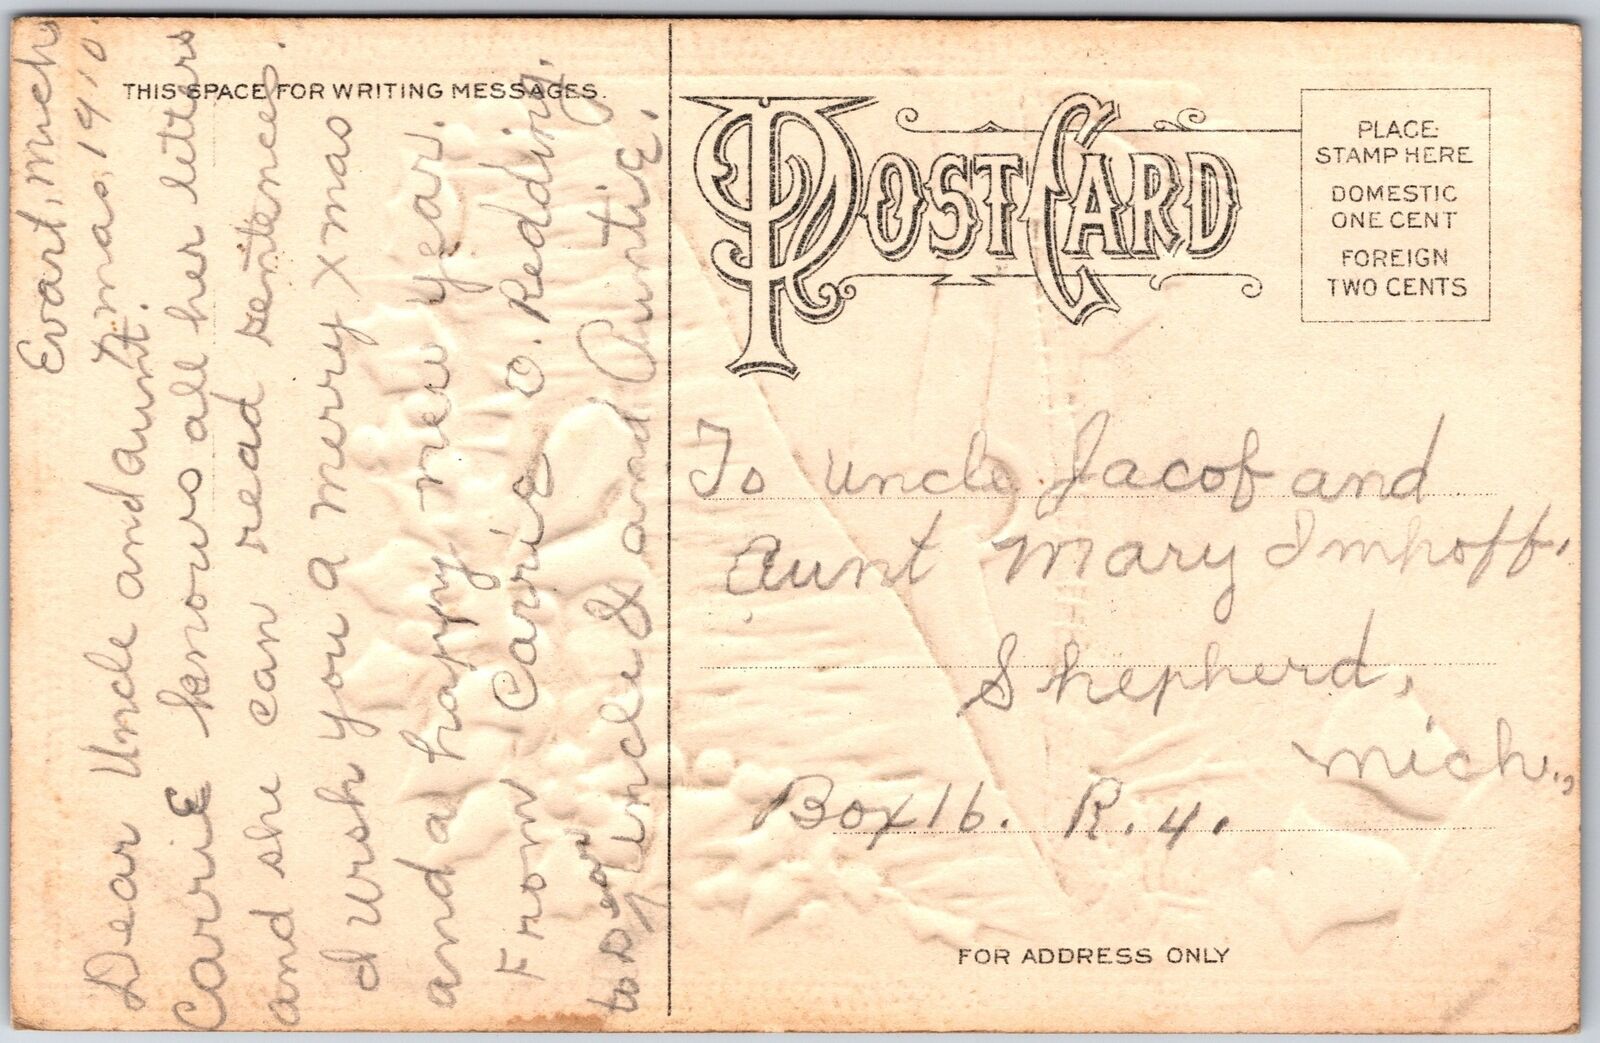 THIS SPACE FOR WRITING MESSAGES.
Evart, Mich
Xmas, 1910.
Dear Uncle and aunt.
Carrie knows all her letters
and she can read sentences.
I wish you a merry xmas
and a happy new year.
From Carrie O. Redding.
to Dear Uncle and Auntie.
POST CARD
PLACE
STAMP HERE
DOMESTIC
ONE CENT
FOREIGN
TWO CENTS
To Uncle Jacob and
Aunt Mary Imhoff.
Shepherd,
Mich.,
Box 16. R. 4.
FOR ADDRESS ONLY